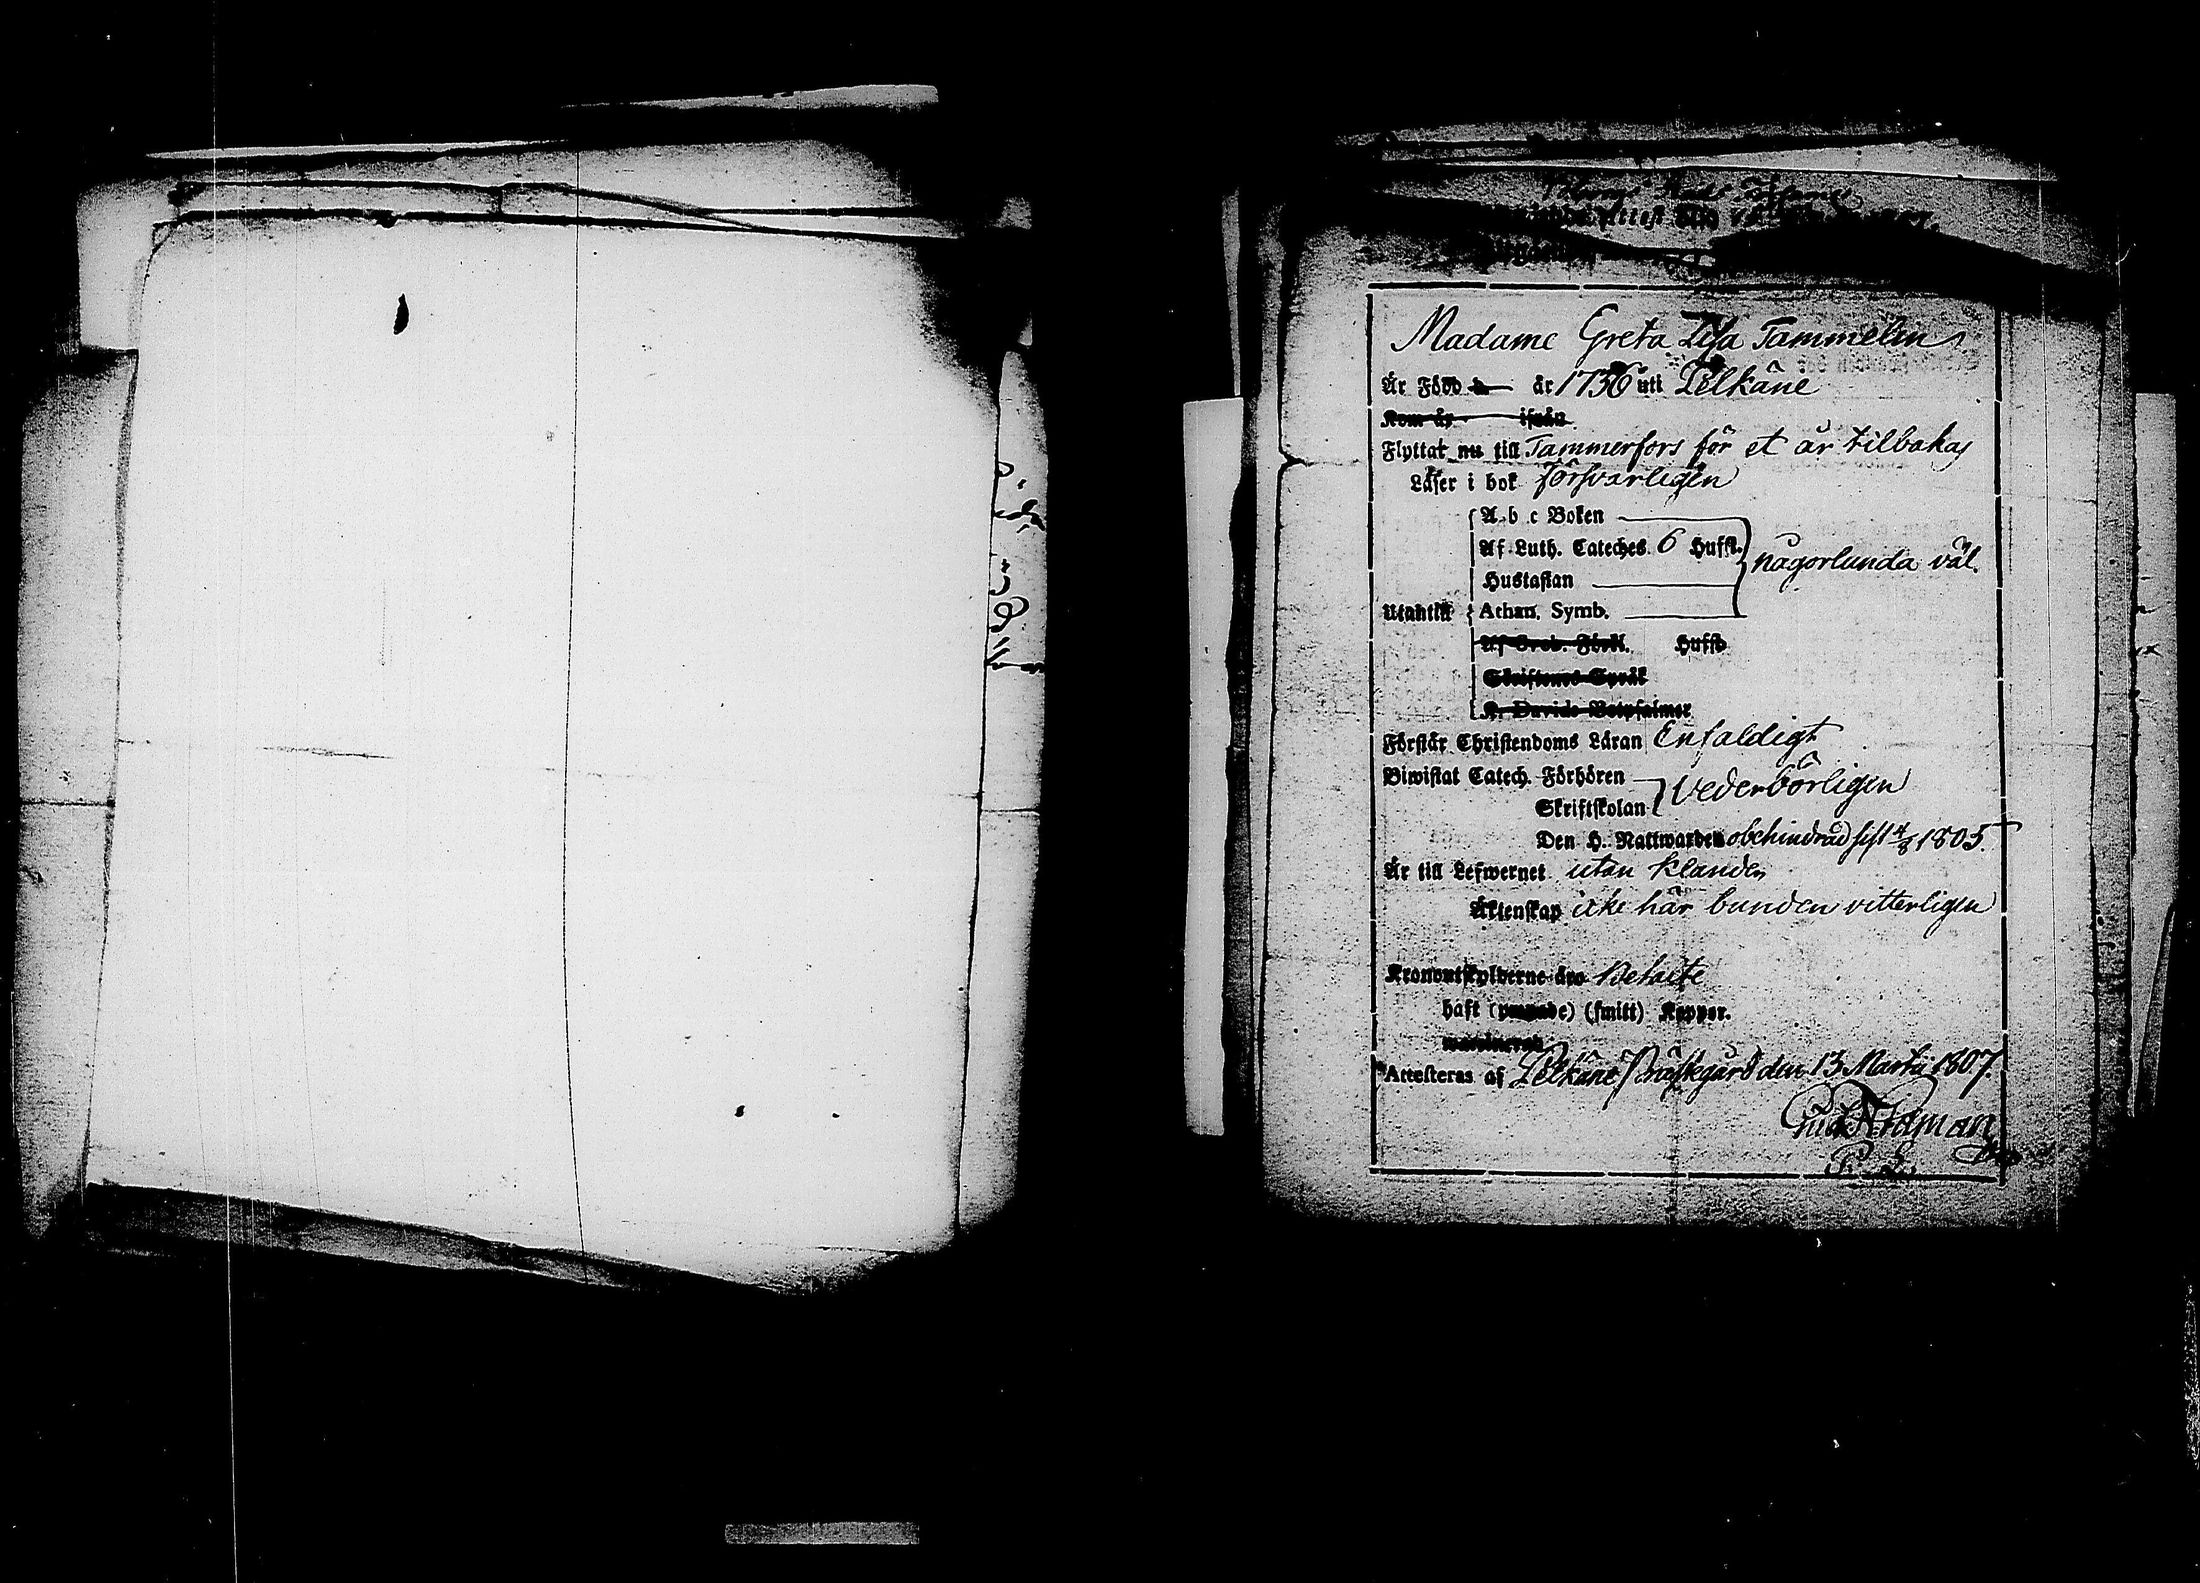 Madame Greta Lisa Tammelin
Är Född är 1736 uti Pelkäne
Kom år ifrån
Flyttat nu till Tammerfors för et år tilbaka
Läser i bok försvarligen
A b c Boken
Af Luth. Cateches. 6 Hufst.
någorlunda väl.
Hustaflan
Utantill Athan. Symb.
Af Sveb. Förkl. Hufst
Skriftenes Språk
K. Davids Botpsalmer
Förstår Christendoms Läran Enfaldigt
Biwistat Catech. Förhören
Vederbörligen
Skriftskolan
Den H. Nattwarden obehindrad sist 4/8 1805.
Är till Lefwernet utan klander
Äktenskap icke här bunden vitterligen
Kronoutskylderne äro Betalte
haft (smitt) Koppor.
Attesteras af Pelkäne Prästgård den 13 Martii 1807.